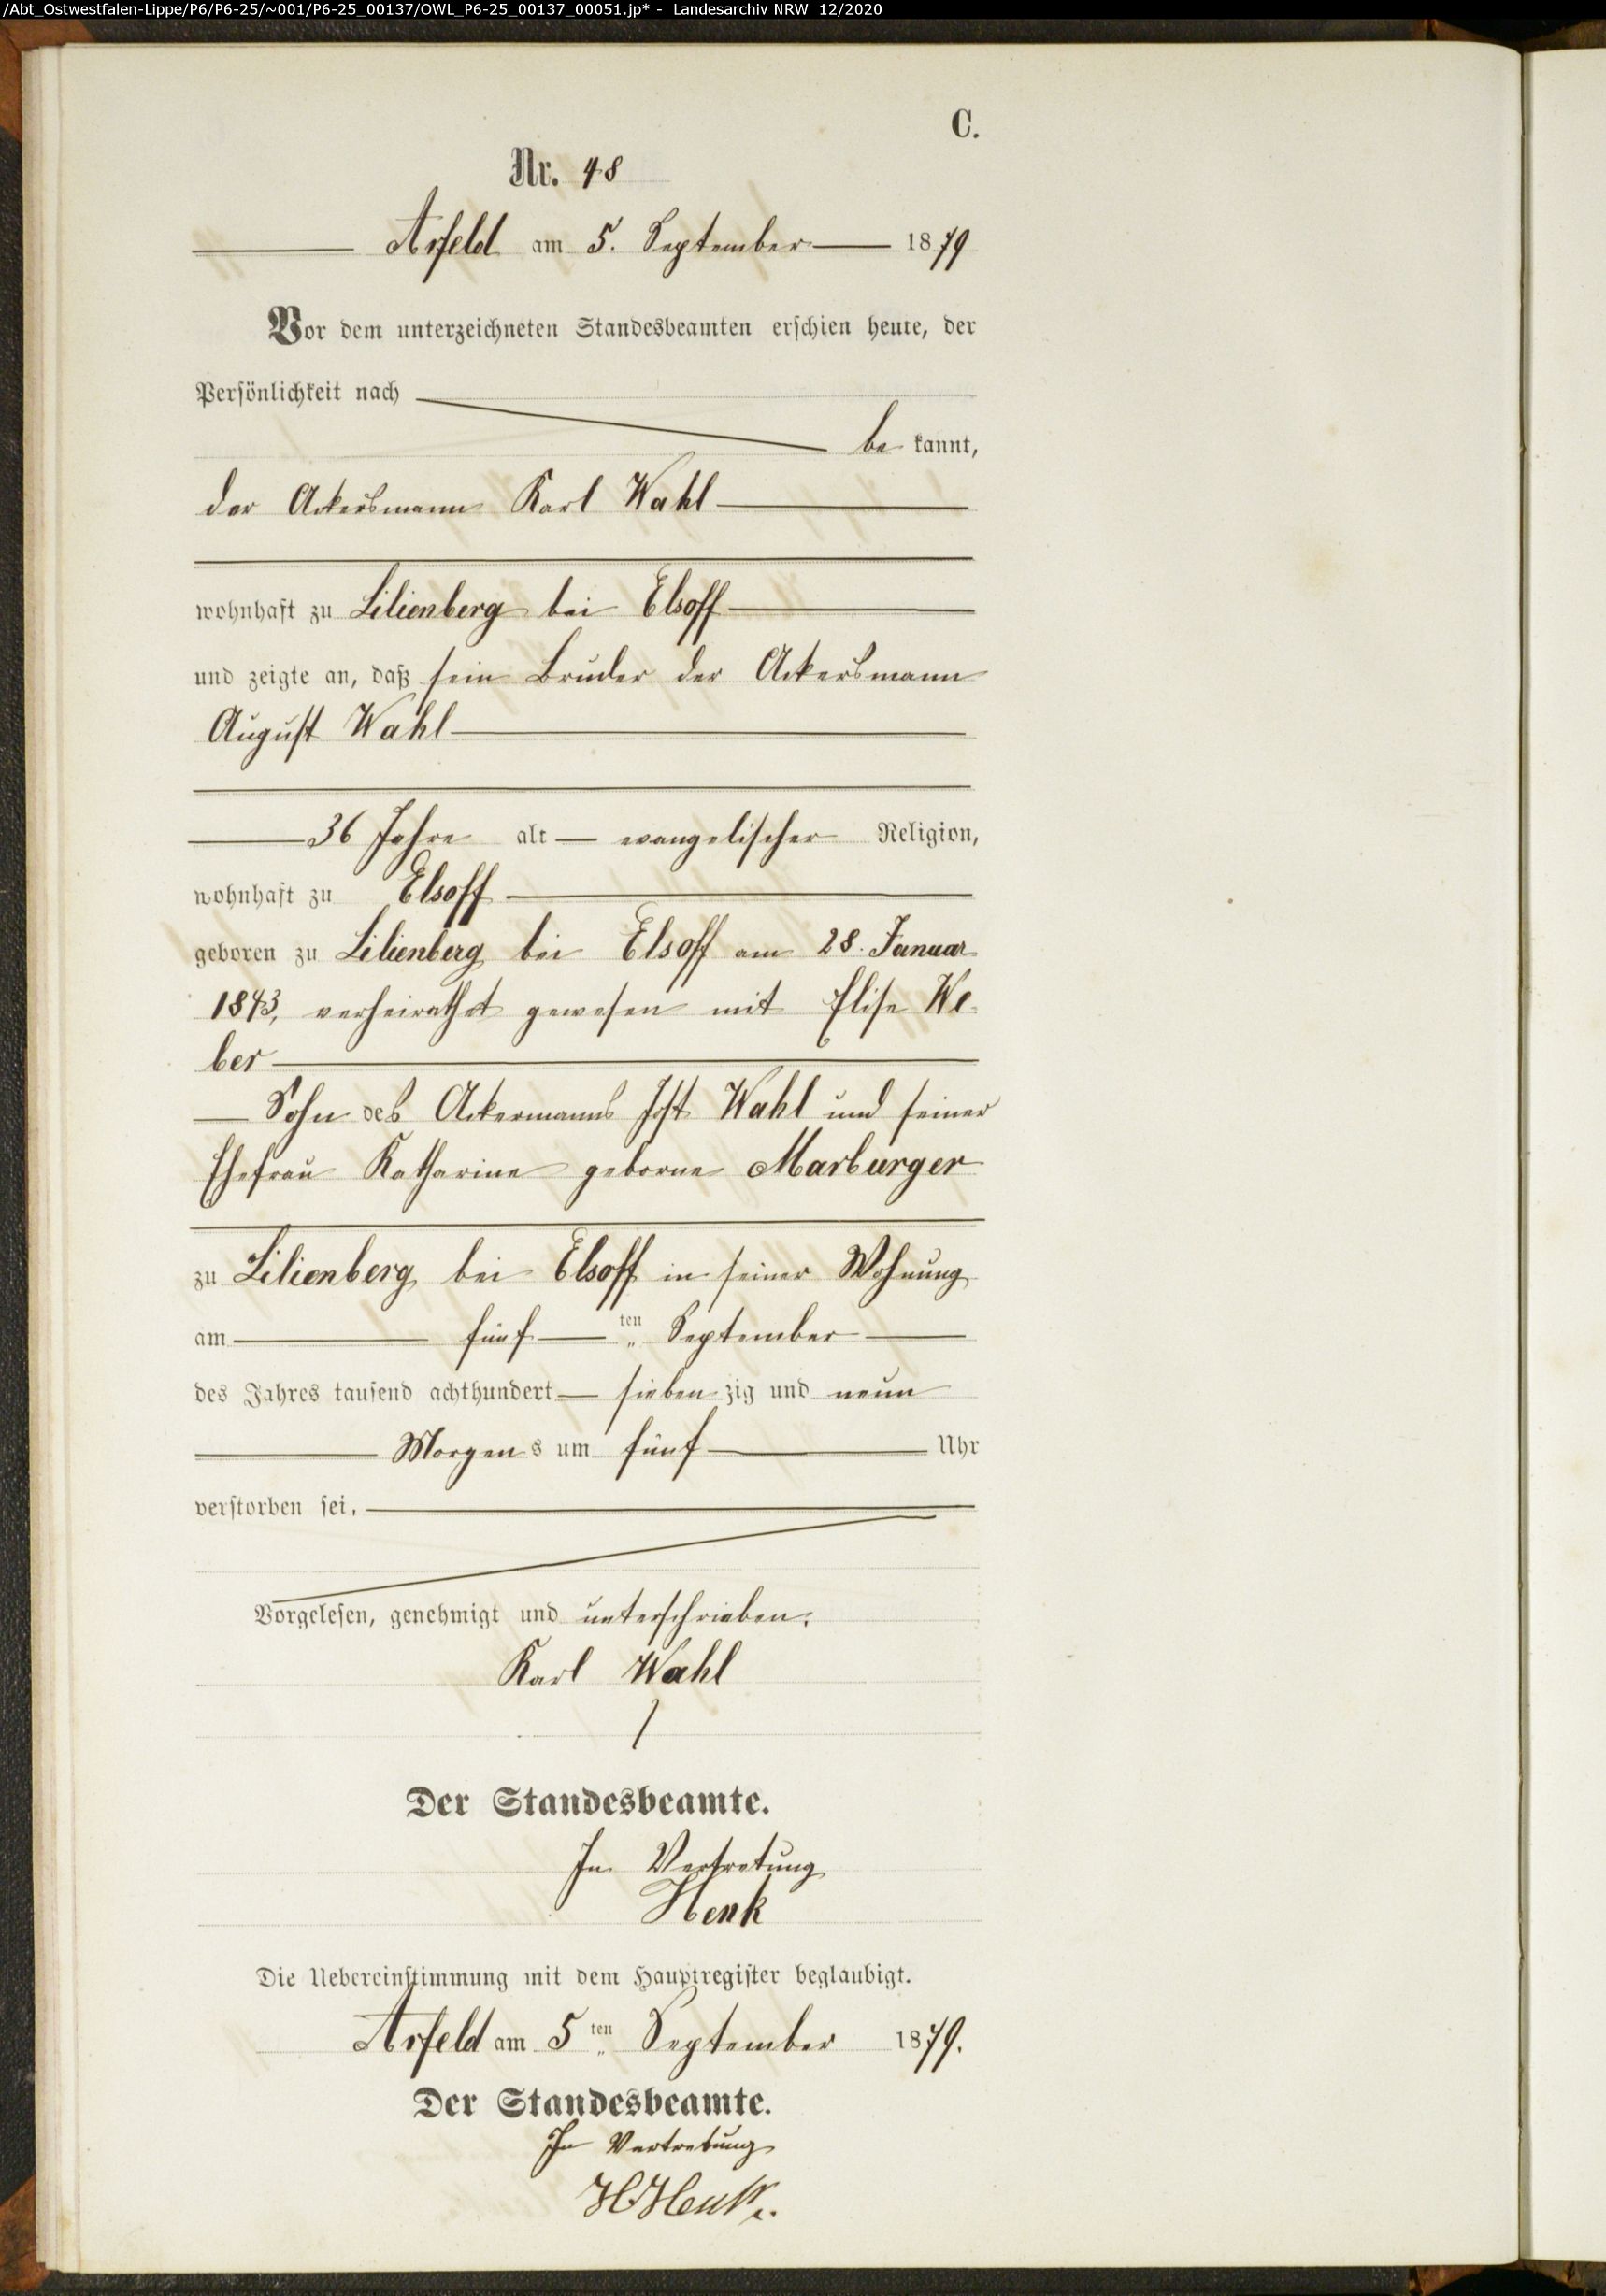 /Abt_Ostwestfalen-Lippe/P6/P6-25/~001/P6-25_00137/OWL_P6-25_00137_00051.jp* - Landesarchiv NRW 12/2020
C.
Nr. 48
Arfeld am 5. September 1879
Vor dem unterzeichneten Standesbeamten erschien heute, der
Persönlichkeit nach
be kannt,
der Ackersmann Karl Wahl
wohnhaft zu Lilienberg bei Elsoff
und zeigte an, daß sein Bruder der Ackersmann
August Wahl
36 Jahre alt evangelischer Religion,
wohnhaft zu Elsoff
geboren zu Lilienberg bei Elsoff am 28. Januar
1843, verheirathet gewesen mit Elise We-
ber
Sohn des Ackermanns Jost Wahl und seiner
Ehefrau Katharine geborne Marburger
zu Lilienberg bei Elsoff in seiner Wohnung
am fünf ten September
des Jahres tausend achthundert sieben zig und neun
Morgen s um fünf Uhr
verstorben sei.
Vorgelesen, genehmigt und unterschrieben.
Karl Wahl
Der Standesbeamte.
In Vertretung
Henk
Die Uebereinstimmung mit dem Hauptregister beglaubigt.
Arfeld am 5 ten September 1879.
Der Standesbeamte.
In Vertretung
HHenk.